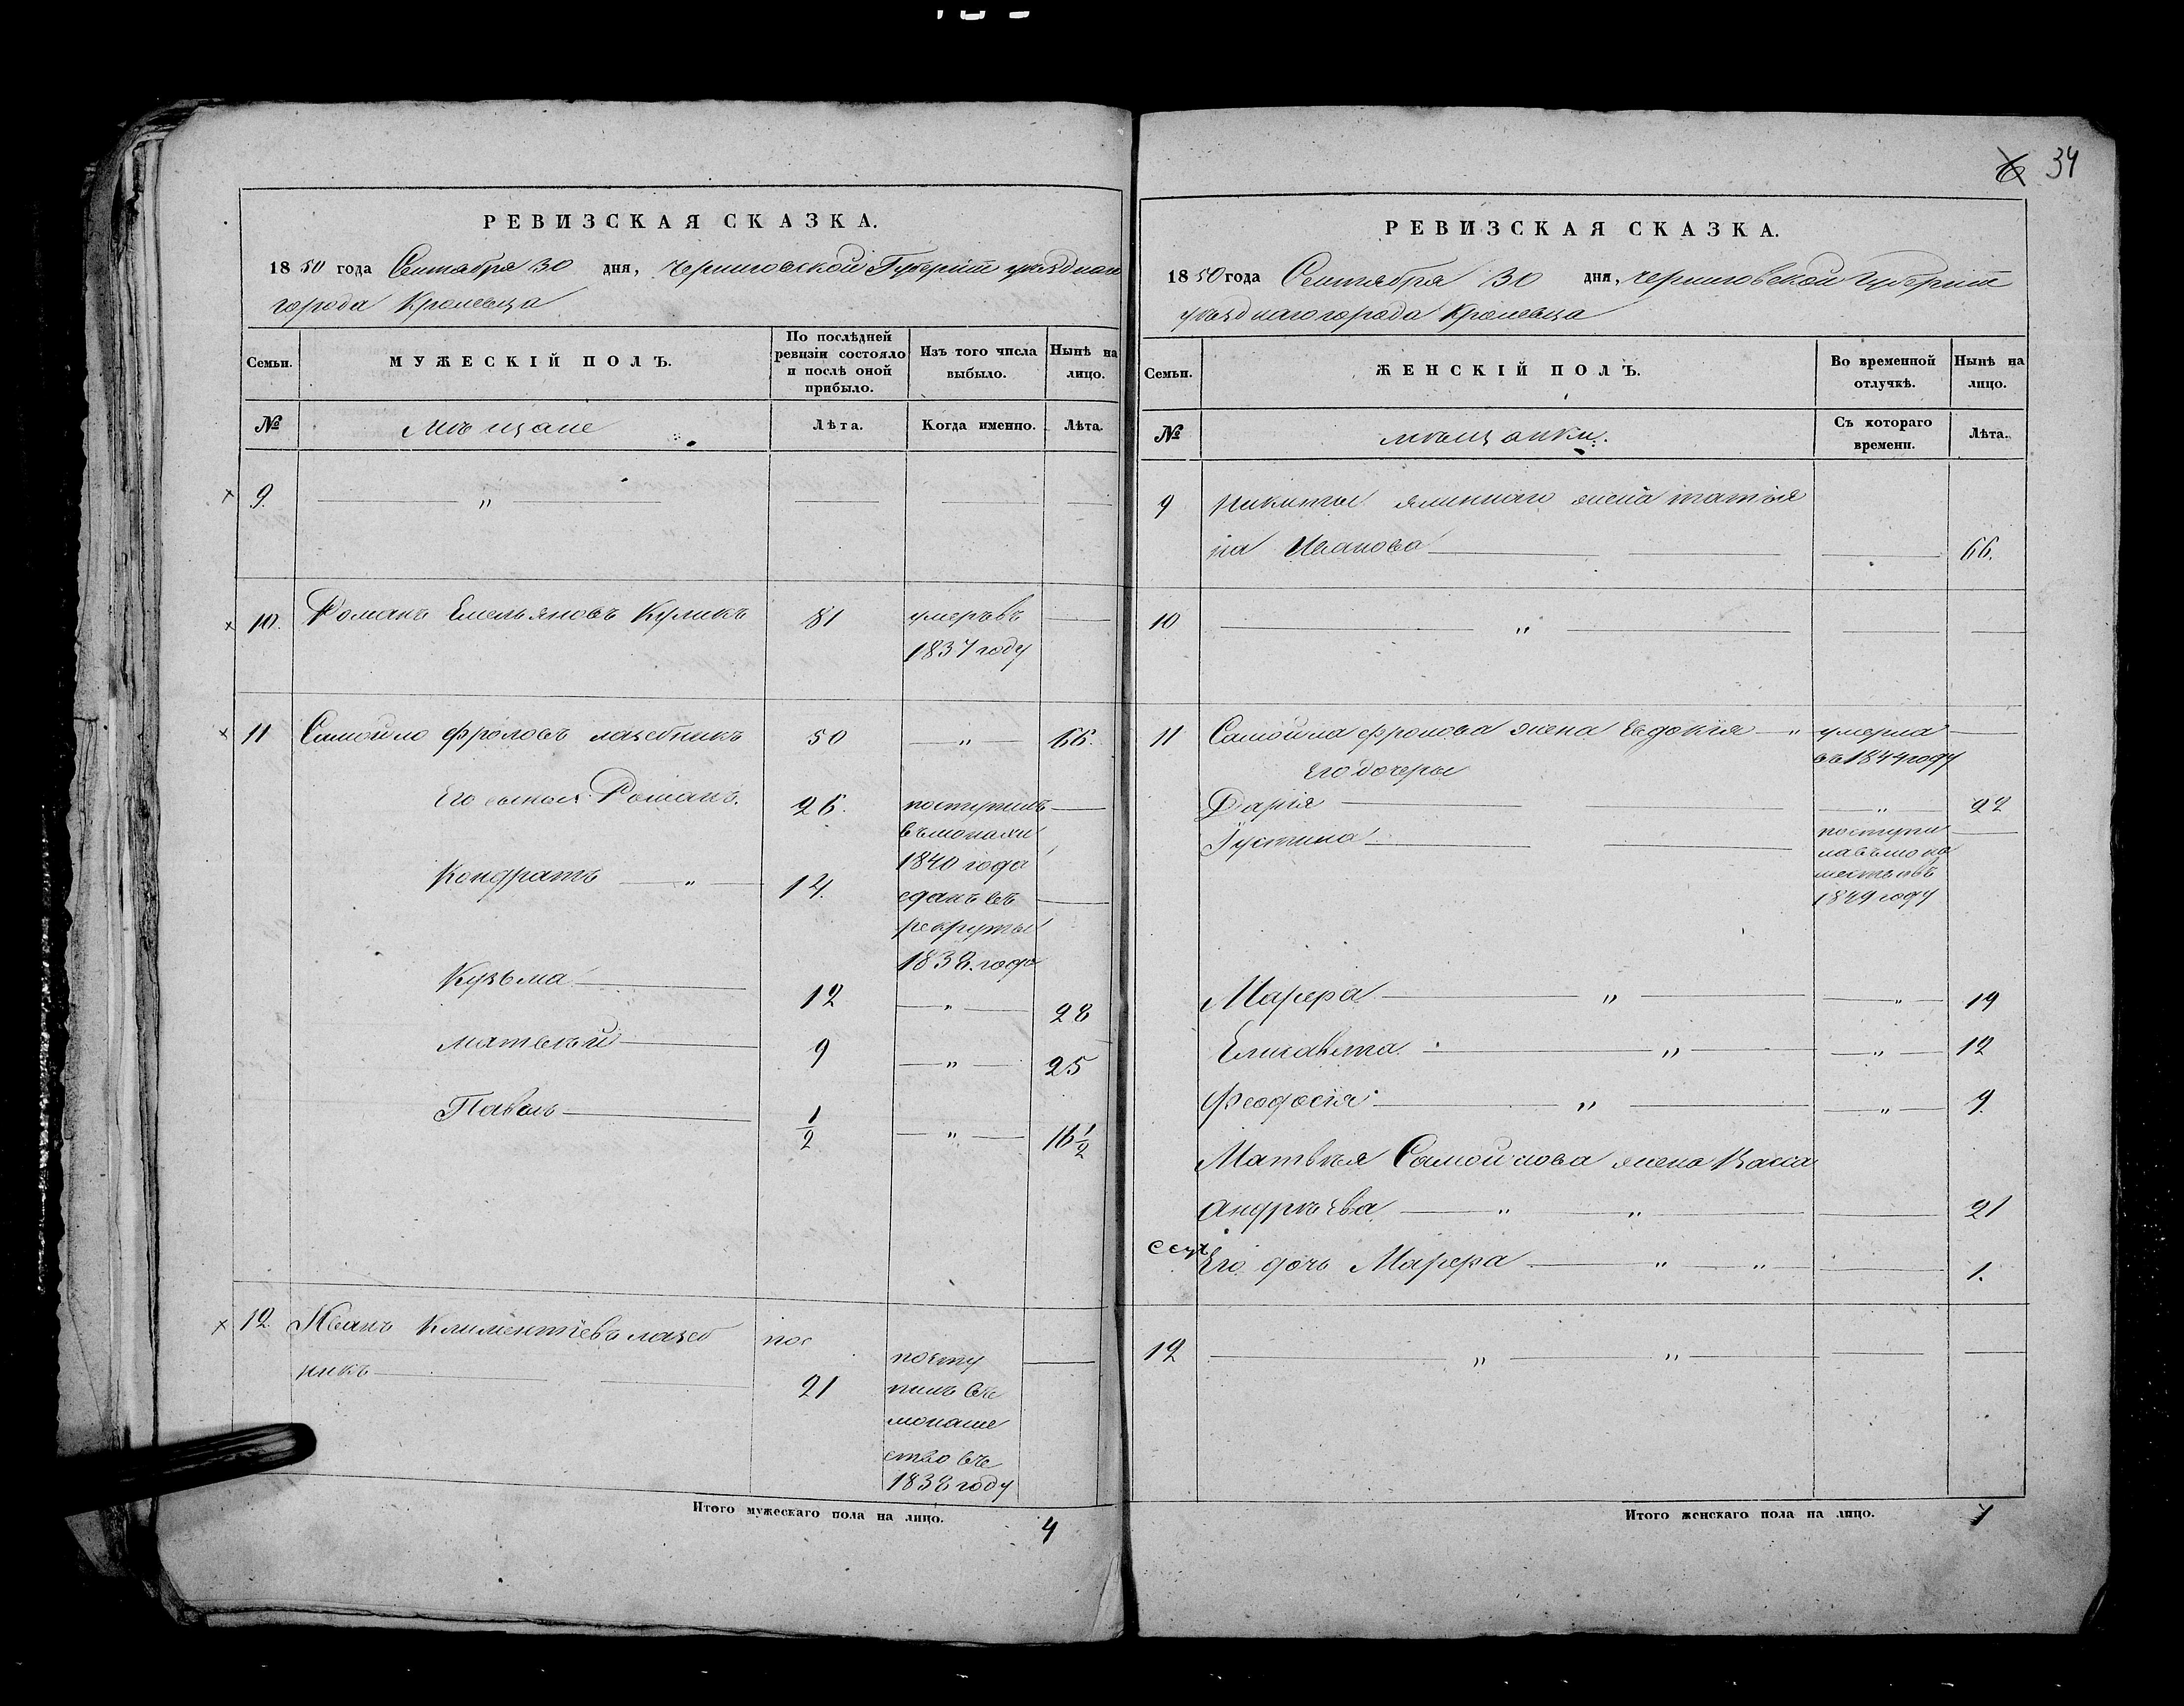 34
РЕВИЗСКАЯ СКАЗКА.
1850 года Сентября 30 дня, Черниговской Губерніи уѣзднаго
города Кролевца
Семьи.
МУЖЕСКІЙ ПОЛЪ.
По послѣдней ревизіи состояло и послѣ оной прибыло.
Изъ того числа выбыло.
Нынѣ на лицо.
№
Мѣщане
Лѣта.
Когда именно.
Лѣта.
9.
10. Романъ Емельяновъ Куликъ 81 умеръ въ
1837 году
11 Самойло Фроловъ лазебникъ 50 66.
Его сыновя Романъ. 26. поступилъ
въ монахи
1840 года
Кондратъ 14. сданъ въ
рекруты
1838. года
Кузьма 12 28
Матвѣй 9 25
Павелъ 1/2 16 1/2
12. Иванъ Климентіевъ лазеб
никъ 21 посту
пилъ въ
монаше
ство въ
1838 году
Итого мужескаго пола на лицо. 4
РЕВИЗСКАЯ СКАЗКА.
1850 года Сентября 30 дня, Черниговской Губерніи
уѣзднаго города Кролевца
Семьи.
ЖЕНСКІЙ ПОЛЪ.
Во временной отлучкѣ.
Нынѣ на лицо.
№
мѣщанки.
Съ котораго времени.
Лѣта.
9 Никиты жена татія
на Иванова 66.
10
11 Самойла Фролова жена Евдокія умерла
въ 1844 году
Его дочеры
Дарія 22
Іустина поступи
ла въ мона
шество въ
1849 году
Марфа 19
Елисавета 12
Феодосія 9.
Матвѣя Самойлова жена Васса
Андрѣева 21
Его дочь Марфа 1.
12
Итого женскаго пола на лицо. 7